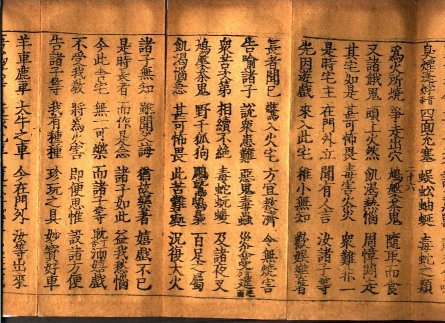 四面充塞 蜈蚣蚰蜒 毒蛇之類
為火所燒 爭走出穴 鳩槃荼鬼 隨取而食
又諸餓鬼 頭上火燃 飢渴熱惱 周慞悶走
其宅如是 甚可怖畏 毒害火災 眾難非一
是時宅主 在門外立 聞有人言 汝諸子等
先因遊戲 來入此宅 稚小無知 歡娛樂著
長者聞已 驚入火宅 方宜救濟 令無燒害
告喻諸子 說眾患難 惡鬼毒蟲 災火蔓延
眾苦次第 相續不絕 毒蛇蚖蝮 及諸夜叉
鳩槃荼鬼 野干狐狗 鵰鷲鵄梟 百足之屬
飢渴惱急 甚可怖畏 此苦難處 況復大火
諸子無知 雖聞父誨 猶故樂著 嬉戲不已
是時長者 而作是念 諸子如此 益我愁惱
今此舍宅 無一可樂 而諸子等 耽湎嬉戲
不受我教 將為火害 即便思惟 設諸方便
告諸子等 我有種種 珍玩之具 妙寶好車
羊車鹿車 大牛之車 今在門外 汝等出來